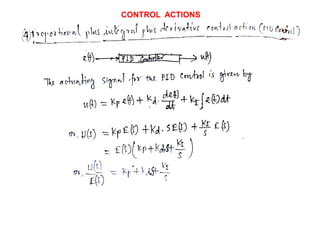 CONTROL ACTIONS
(4) Proportional plus integral plus derivative control action (PID Control)
e(t) → PID Controller → u(t)
The actuating signal for the PID control is given by
u(t) = Kp e(t) + Kd. de(t)/dt + KI ∫ e(t) dt
or, U(s) = Kp E(s) + Kd. S E(s) + KI/s E(s)
= E(s) (Kp + Kd s + KI/s)
or, U(s)/E(s) = Kp + Kd s + KI/s